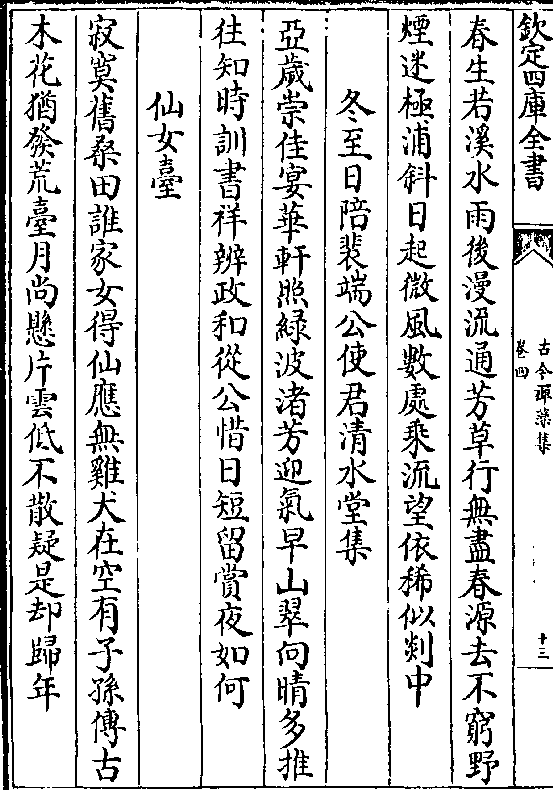 欽定四庫全書
古今禪藻集
卷四
十三
春生若溪水雨後漫流通芳草行無盡春源去不窮野
煙迷極浦斜日起微風數處乘流望依稀似剡中
冬至日陪裴端公使君清水堂集
亞歲崇佳宴華軒照綠波渚芳迎氣早山翠向晴多推
往知時訓書祥辨政和從公惜日短留賞夜如何
仙女臺
寂寞舊桑田誰家女得仙應無雞犬在空有子孫傳古
木花猶發荒臺月尚懸片雲低不散疑是却歸年